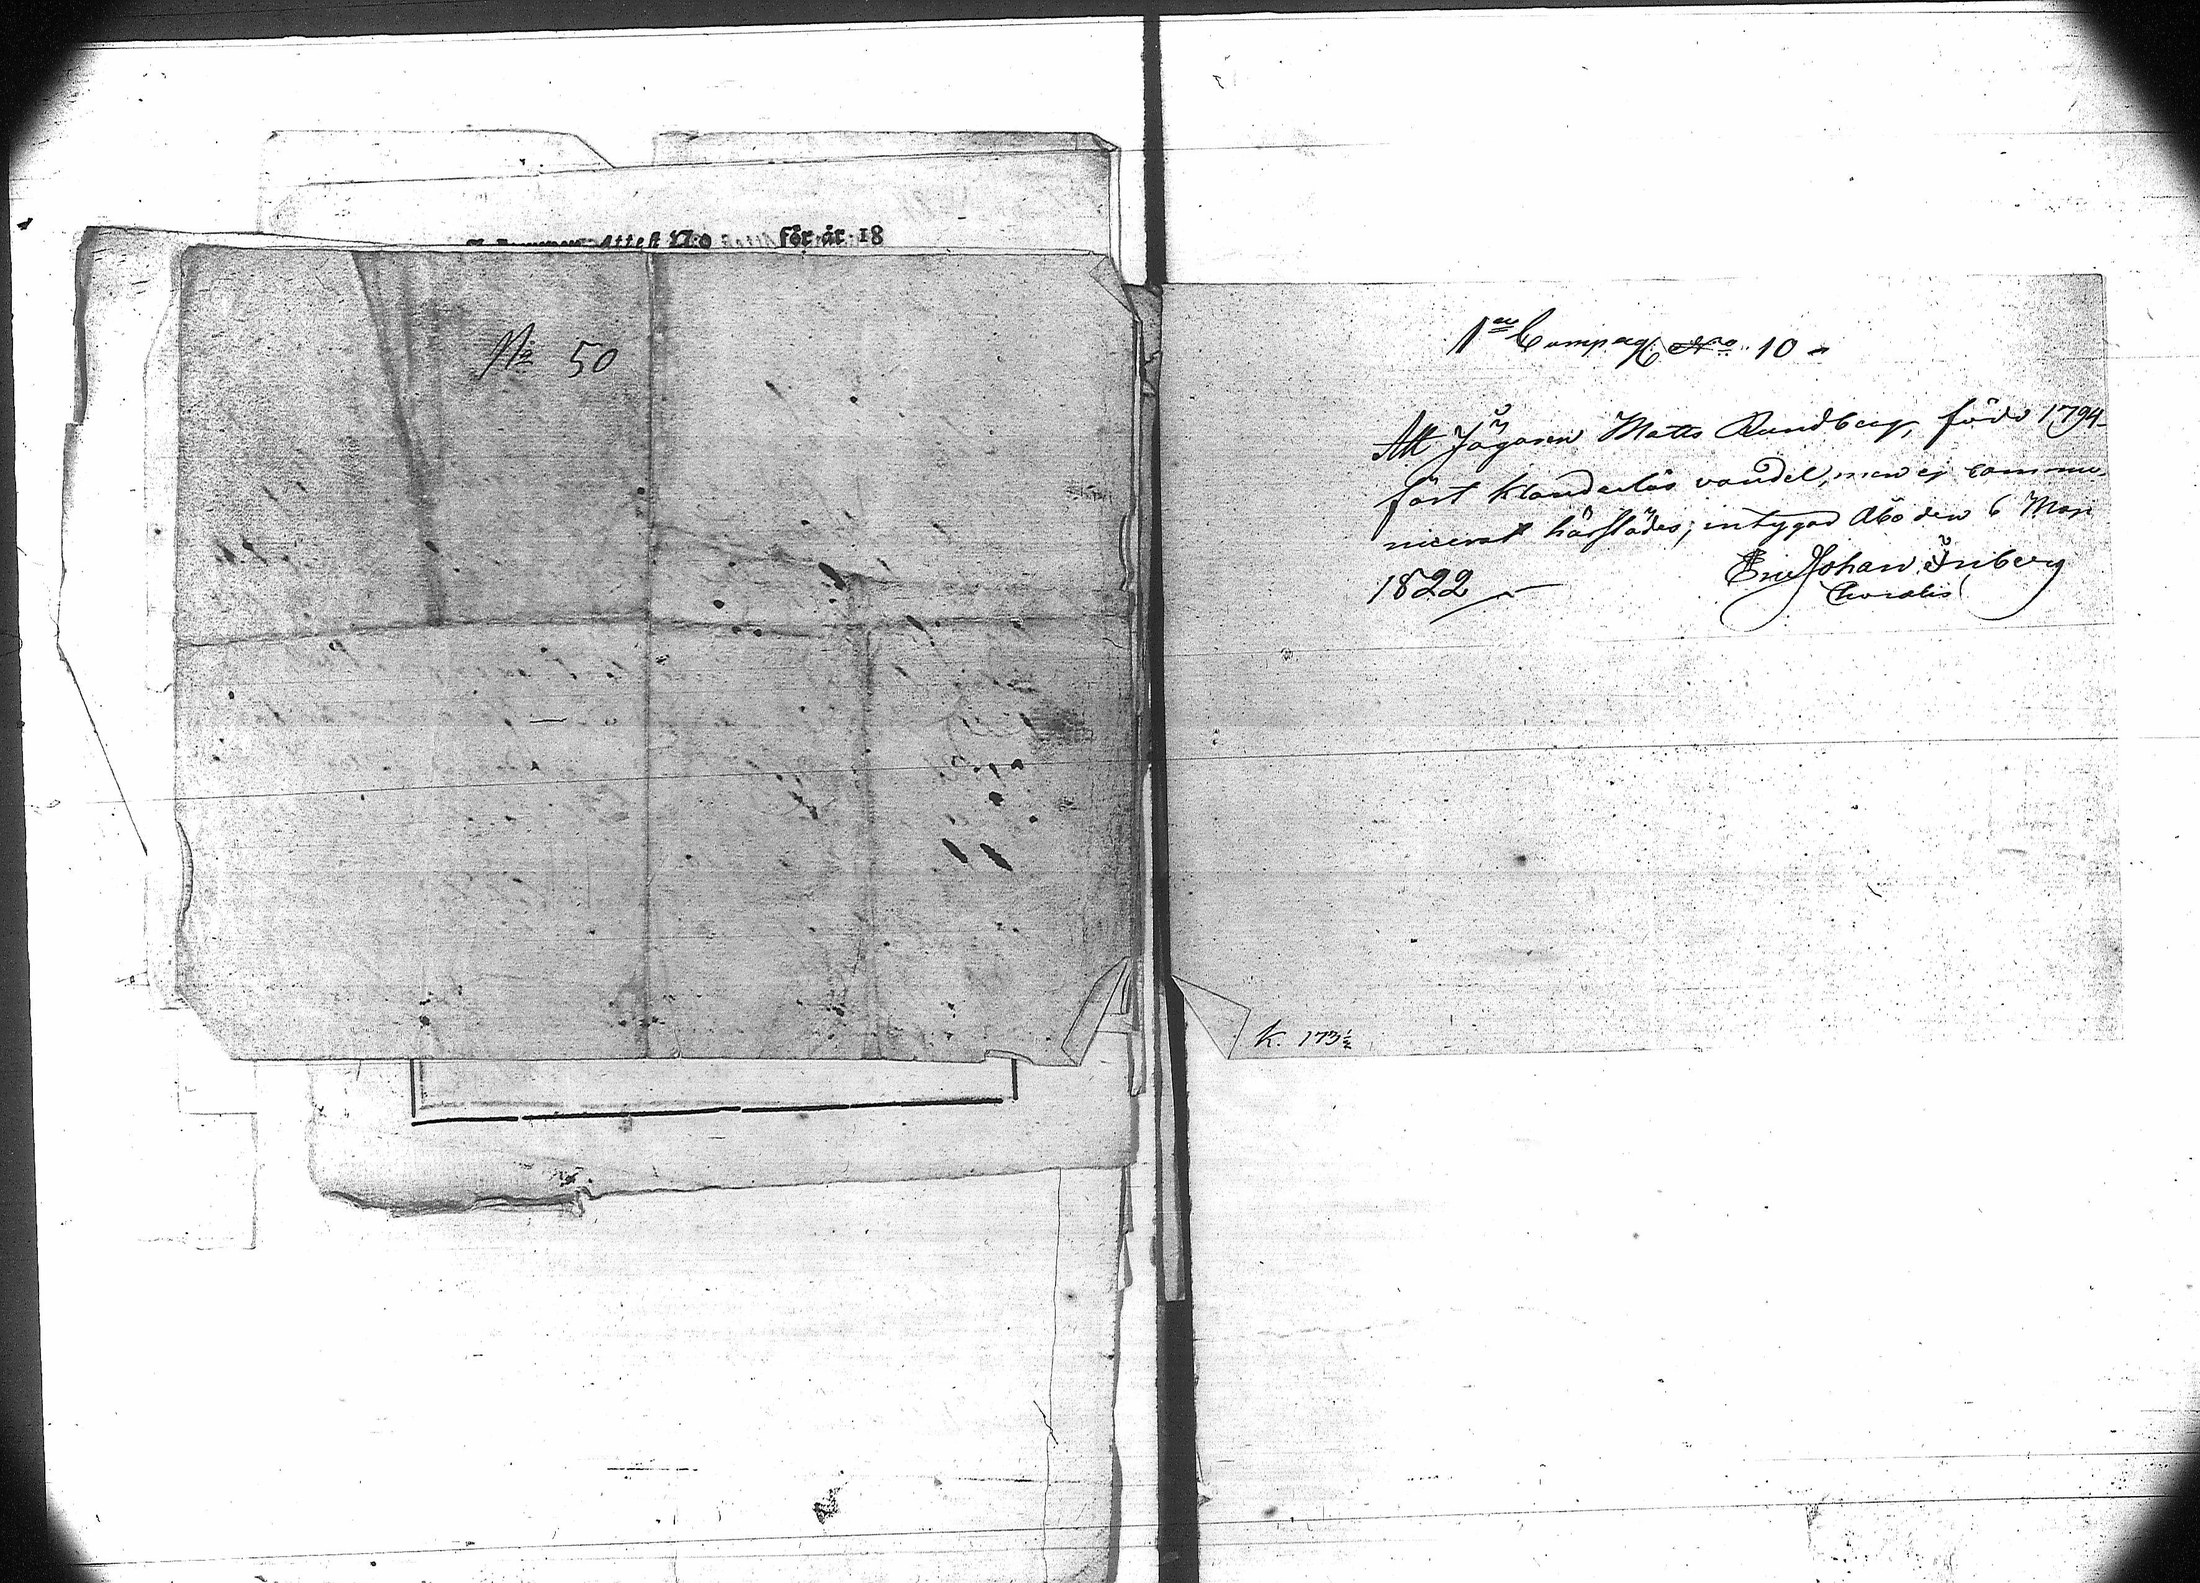 Attest N:o för år 18
No 50
1ra Compag No 10
Att Jägaren Matts Rundberg, född 1794
fört klanderlös vandel, men ej commu-
nicerat härstädes; intygad Åbo den 6 Maji
1822
Eric Johan Inberg
K. 173½